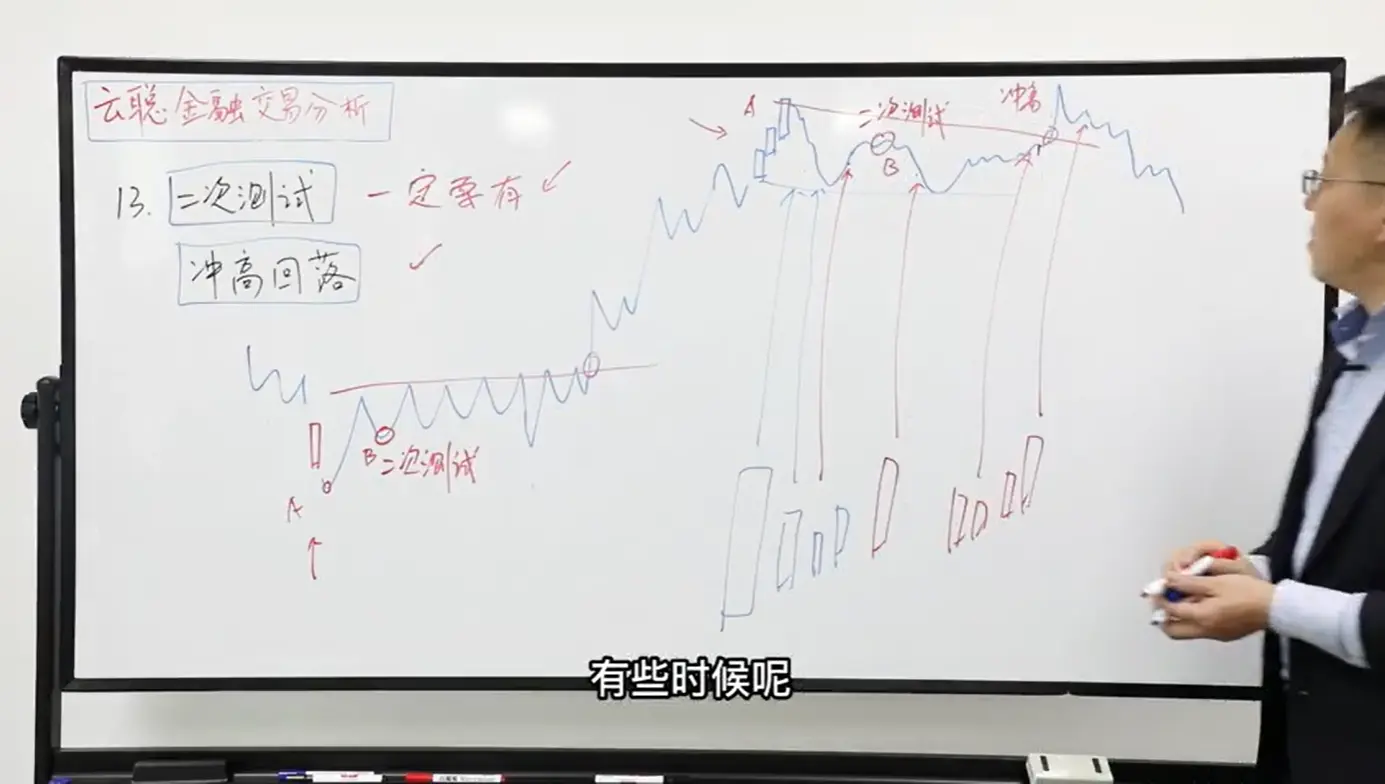 云聪金融交易分析
13. 二次测试 一定要有
冲高回落
A
二次测试
B
冲高
B 二次测试
A
有些时候呢